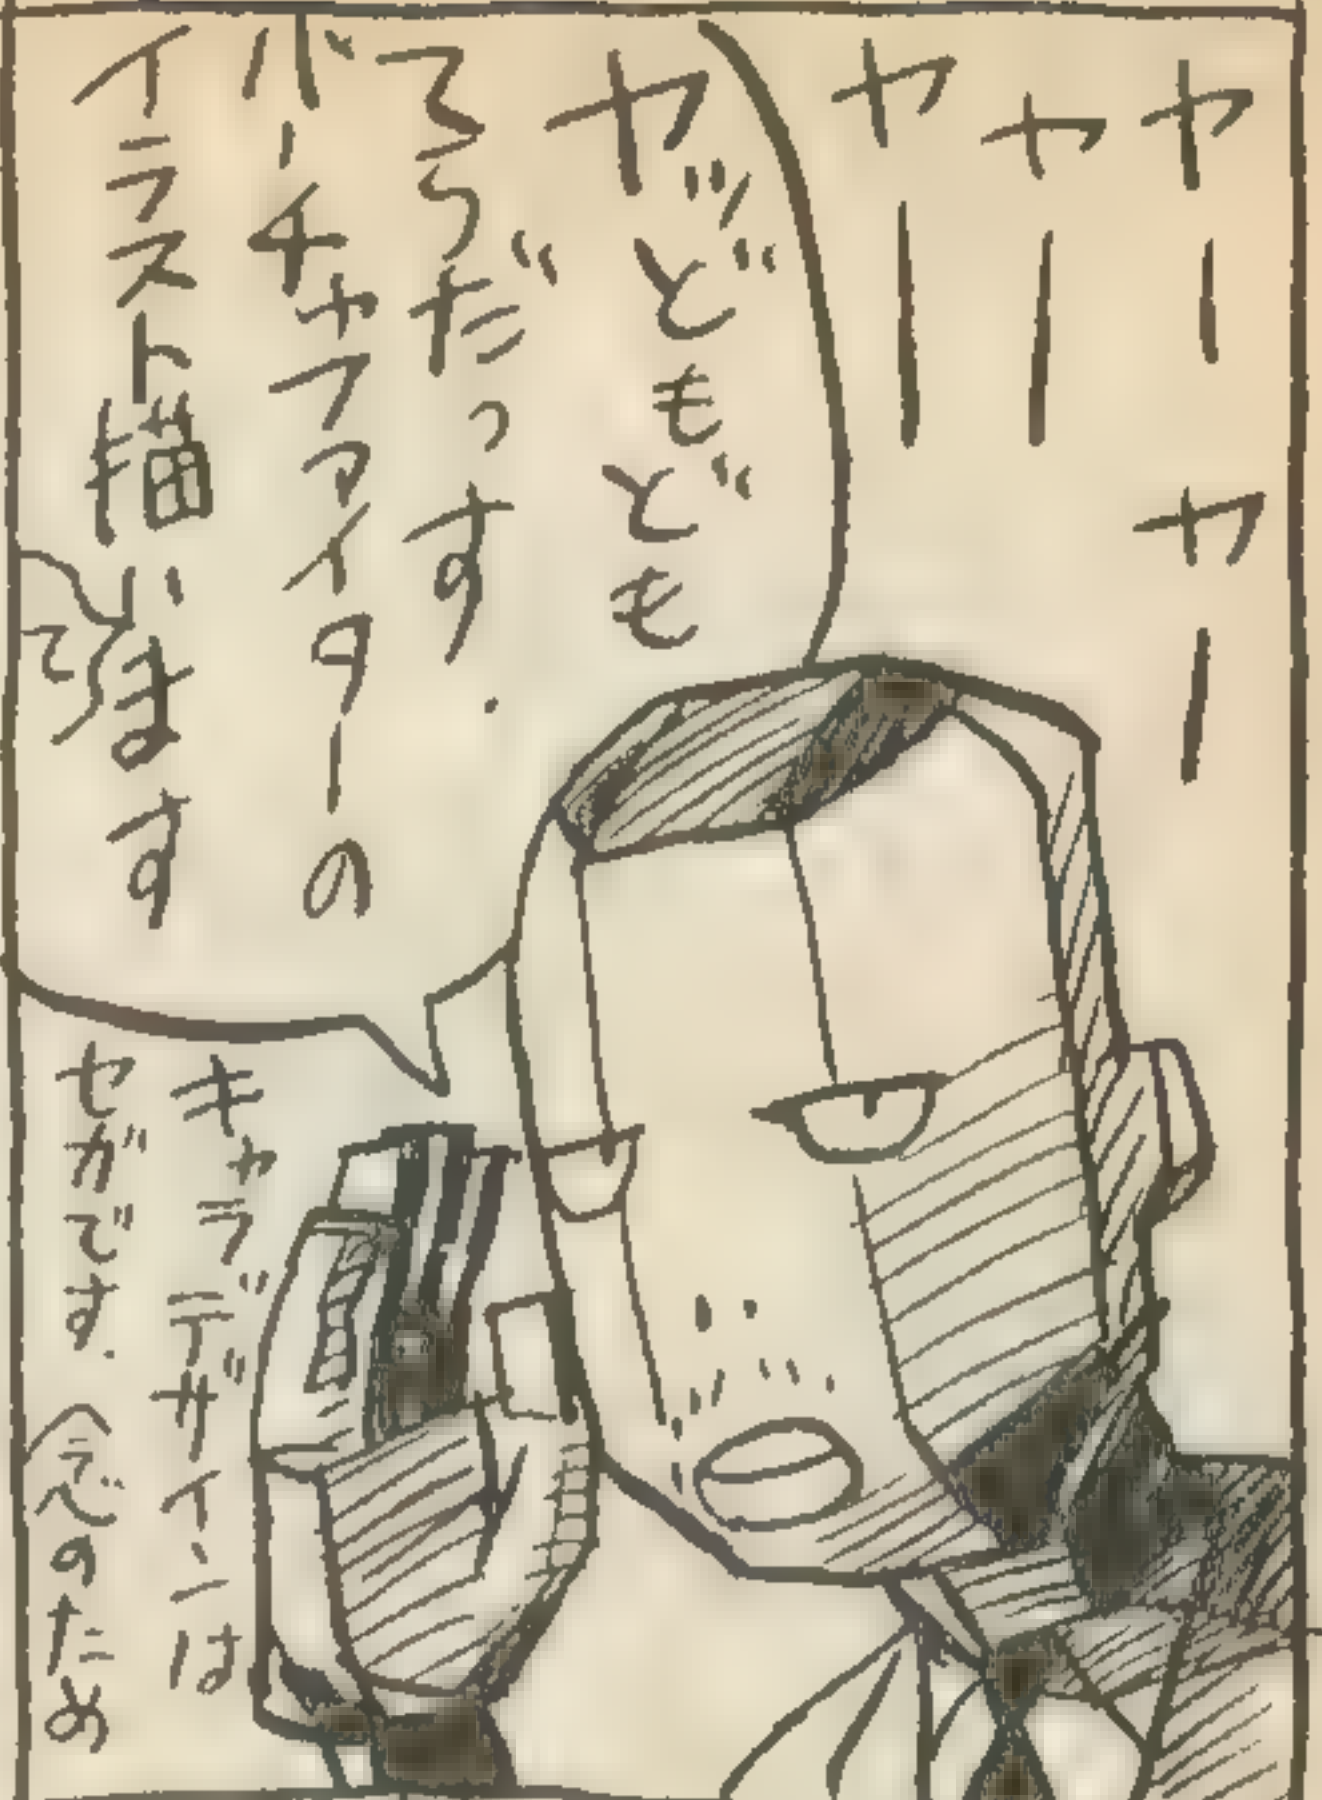 ヤー ヤー
ヤー
ヤー
ヤッどもども
てらだっす.
バーチャファイターの
イラスト描います
て
キャラデザインは
セガです. 念のため